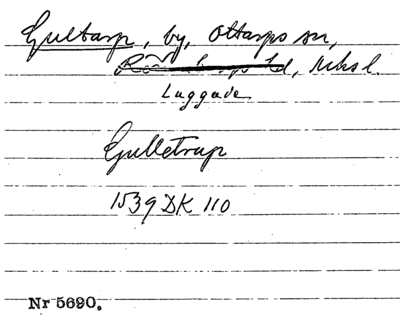 Gultarp, by, Ottarps sn,
Rönnebergs hd, Mhs l.
Luggude
Gulletrup
1539 DK 110
Nr 5690.